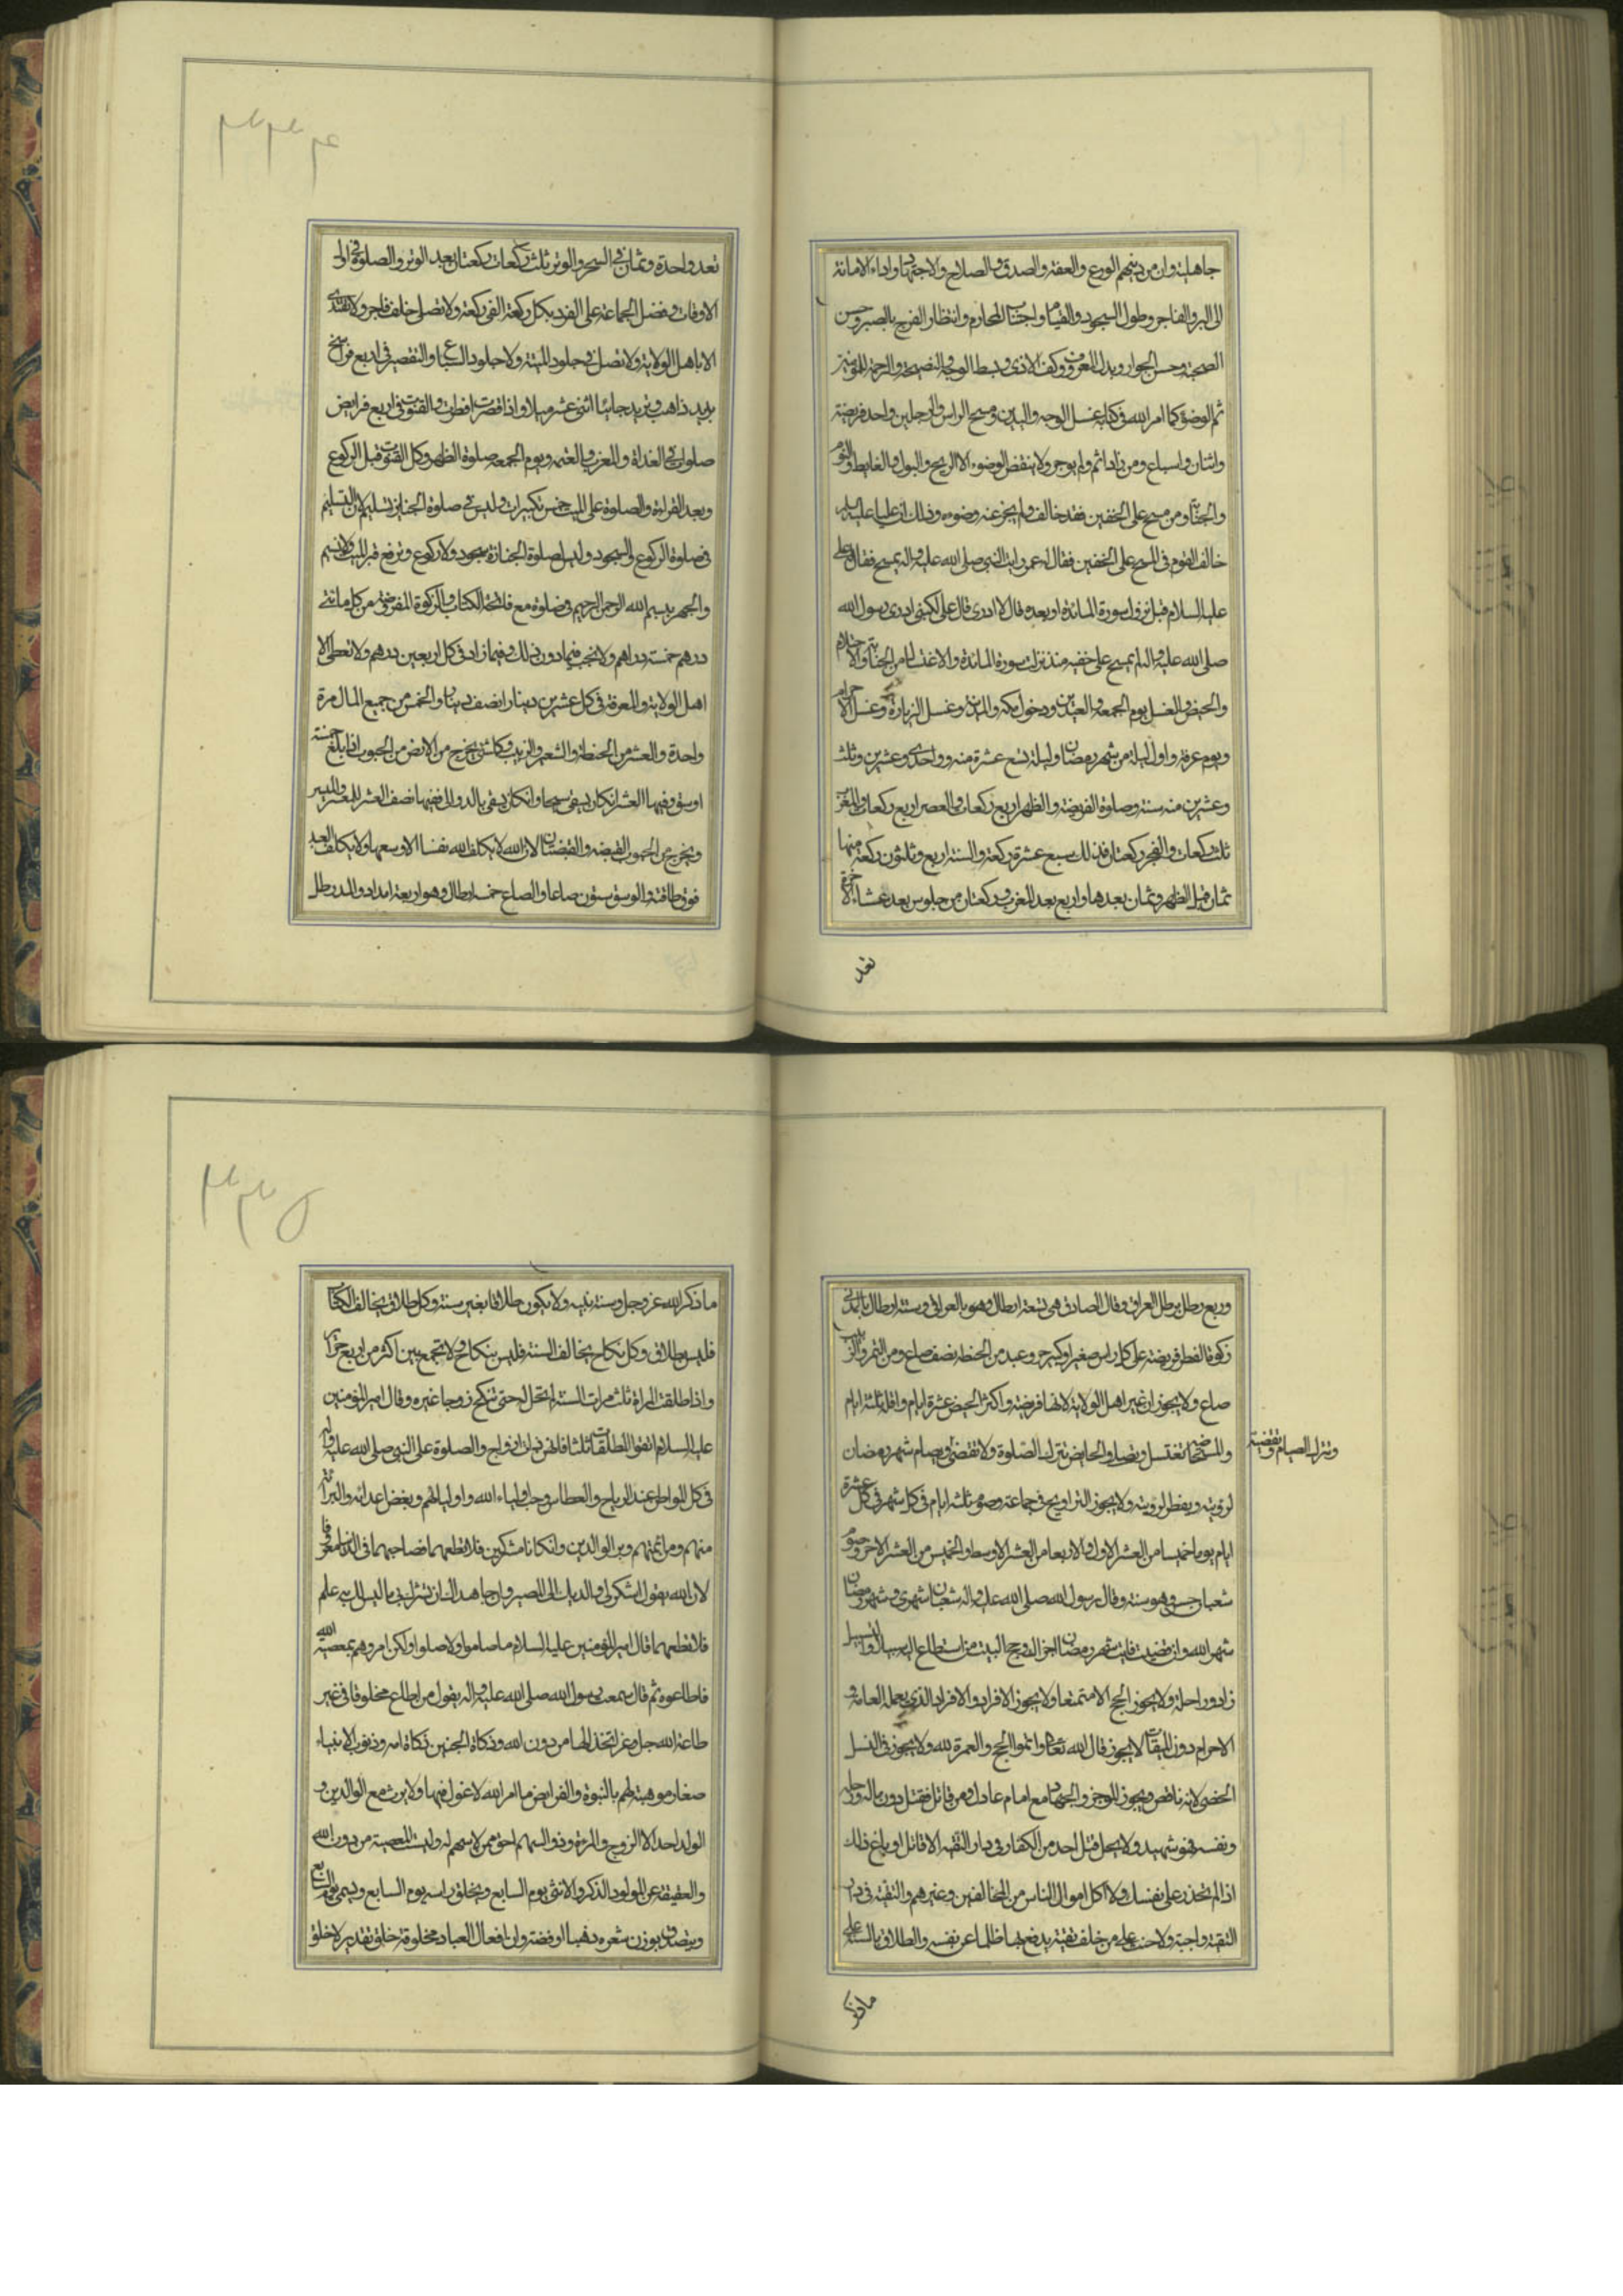 جاهلية وان من دينهم الورع والعفة والصدق والصلاح والاجتهاد واداء الامانة
الى البر والفاجر وطول السجود والقيام واجتناب المحارم وانتظار الفرج بالصبر وحسن
الصحبة وحسن الجوار وبذل المعروف وكف الاذى وبسط الوجه والنصيحة والرحمة للمؤمنين
ثم الوضوء كما امر الله في كتابه غسل الوجه واليدين ومسح الراس والرجلين واحد فريضة
واثنان واسباغ ومن زاد اثم ولم يوجر ولا ينقض الوضوء الا الريح والبول والغايط والنوم
والجنابة ومن مسح على الخفين فقد خالف ولم يجز عنه وضوءه وذلك ان عليا عليه السلم
خالف القوم في المسح على الخفين فقال له عمر رايت النبي صلى الله عليه واله يمسح فقال علي
عليه السلام قبل نزول سورة المائدة او بعده قال لا ادرى قال على لكنى ادرى رسول الله
صلى الله عليه واله لم يمسح على خفيه منذ نزلت سورة المائدة والاغتسال من الجنابة والاحتلام
والحيض والغسل يوم الجمعة والعيدين ودخول مكة والمدينة وغسل الزيارة وغسل الاحرام
ويوم عرفة واول ليلة من شهر رمضان وليلة تسع عشرة منه وواحدى وعشرين وثلث
وعشرين منه سنة وصلوة الفريضة والظهر اربع ركعات والعصر اربع ركعات والمغرب
ثلث ركعات والفجر ركعتان فذلك سبع عشرة ركعة والسنة اربع وثلثون ركعة منها
ثمان قبل الظهر وثمان بعدها واربع بعد المغرب وركعتان من جلوس بعد عشاء الاخرة
تعد
۳۳۴
تعد واحدة وثمان في السحر والوتر ثلث ركعات وركعتان بعد الوتر والصلوة في اول
الاوقات وفضل الجماعة على الفرد بكل ركعة الفي ركعة ولا تصلى خلف فاجر ولا تقتدى
الا باهل الولاية ولا تصل في جلود الميتة ولا جلود السباع والتقصير في اربع فراسخ
بريد ذاهب وبريد جائيا اثنى عشر ميلا واذا قصرت افطرت والقنوت في اربع فرايض
صلوات في الغداة والمغرب والعتمة ويوم الجمعة صلوة الظهر وكل القنوت قبل الركوع
وبعد القراءة والصلوة على الميت خمس تكبيرات وليس في صلوة الجنايز تسليم لان التسليم
في صلوة الركوع والسجود وليس لصلوة الجنازة سجود ولا ركوع وتربع قبر الميت ولا تسنم
والجهر ببسم الله الرحمن الرحيم في صلوة مع فاتحة الكتاب والزكوة المفروضة من كل مائتي
درهم خمسة دراهم ولا تجب فيما دون ذلك وفيما زاد في كل اربعين درهم ولا تعطى الا
اهل الولاية والمعرفة في كل عشرين دينارا نصف دينار والخمس من جميع المال مرة
واحدة والعشر من الحنطة والشعير والزبيب وكل شئ يخرج من الارض من الحبوب اذا بلغ خمسة
اوسق وفيها العشر ان كان يسقى سيحا وان كان يسقى بالدوالى ففيها نصف العشر للمعسر والميسر
ويخرج من الحبوب القبضة والقبضتان لان الله لا يكلف الله نفسا الا وسعها ولا يكلف العبد
فوق طاقته والوسق ستون صاعا والصاع خمسة ارطال وهو اربعة امداد والمد رطل
وربع رطل برطل العراق وقال الصادق هى تسعة ارطال وهو بالعراقي وستة ارطال بالمدنى
زكوة الفطر فريضة على كل راس صغير او كبير حر وعبد من الحنطة نصف صاع ومن التمر والزبيب
صاع ولا يجوز ان غير اهل الولاية لانها فريضة واكثر الحيض عشرة ايام واقله ثلثة ايام
والمستحاضة تغتسل وتصلى والحايض تترك الصلوة ولا تقضى وصيام شهر رمضان
وتترك الصيام وتقضيه
لرؤيته ويفطر لرؤيته ولا يجوز التراويح في جماعة وصوم ثلثة ايام في كل شهر في كل عشرة
ايام يوما خميسا من العشر الاول والاربعا من العشر الاوسط والخميس من العشر الاخر وصوم
شعبان حسن وهو سنة وقال رسول الله صلى الله عليه واله شعبان شهرى وشهر رمضان
شهر الله وان قضيت فايت شهر رمضان اجزاك وحج البيت من استطاع اليه سبيلا والسبيل
زاد وراحلة ولا يجوز الحج الا متمتعا ولا يجوز الافراد والاقران الذي يعمله العامة و
الاحرام دون الميقات لا يجوز قال الله تعالى واتموا الحج والعمرة لله ولا يجوز في النسك
الخصى لانه ناقص ويجوز الموجوء والجهاد مع امام عادل ومن قاتل فقتل دون ماله ورحله
ونفسه فهو شهيد ولا يحل قتل احد من الكفار في دار التقية الا قاتل او باغ وذلك
اذا لم تحذر على نفسك ولا اكل اموال الناس من المخالفين وغيرهم والتقية في دار
التقية واجبة ولا حنث على من حلف تقية يدفع بها ظلما عن نفسه والطلاق بالسنة على
ما ذكر
۳۳۵
ما ذكر الله عز وجل وسنة نبيه ولا يكون طلاقا بغير سنة وكل طلاق يخالف الكتاب
فليس بطلاق وكل نكاح يخالف السنة فليس بنكاح ولا تجمع بين اكثر من اربع حراير
واذا طلقت المراة ثلث مرات للسنة لم تحل له حتى تنكح زوجا غيره وقال امير المؤمنين
عليه السلام اتقوا المطلقات ثلثا فانهن ذوات ازواج والصلوة على النبي صلى الله عليه واله
في كل المواطن عند الرياح والعطاس وحب اولياء الله واوليائهم وبغض اعدائه والبرائة
منهم ومن ائمتهم وبر الوالدين وان كانا مشركين فلا تطعهما وصاحبهما في الدنيا معروفا
لان الله يقول اشكر لي ولوالديك الى المصير وان جاهداك ان تشرك بي ما ليس لك به علم
فلا تطعهما قال امير المؤمنين عليه السلام ما صاموا ولا صلوا ولكن امروهم بمعصية الله
فاطاعوه ثم قال سمعت رسول الله صلى الله عليه واله يقول من اطاع مخلوقا في غير
طاعة الله جل وعز اتخذ الها من دون الله وذكاة الجنين ذكاة امه وذنوب الانبياء
صغار موهبة لهم بالنبوة والفرايض ما امر الله لا عول فيها ولا يرث مع الوالدين و
الولد احد الا الزوج والمرءة وذو السهام احق ممن لا سهم له وليست العصبة من دين الله
والعقيقة عن المولود الذكر والانثى يوم السابع ويحلق راسه يوم السابع ويسمى يوم السابع
ويتصدق بوزن شعره ذهبا او فضة وان افعال العباد مخلوقة خلق تقدير لا خلق